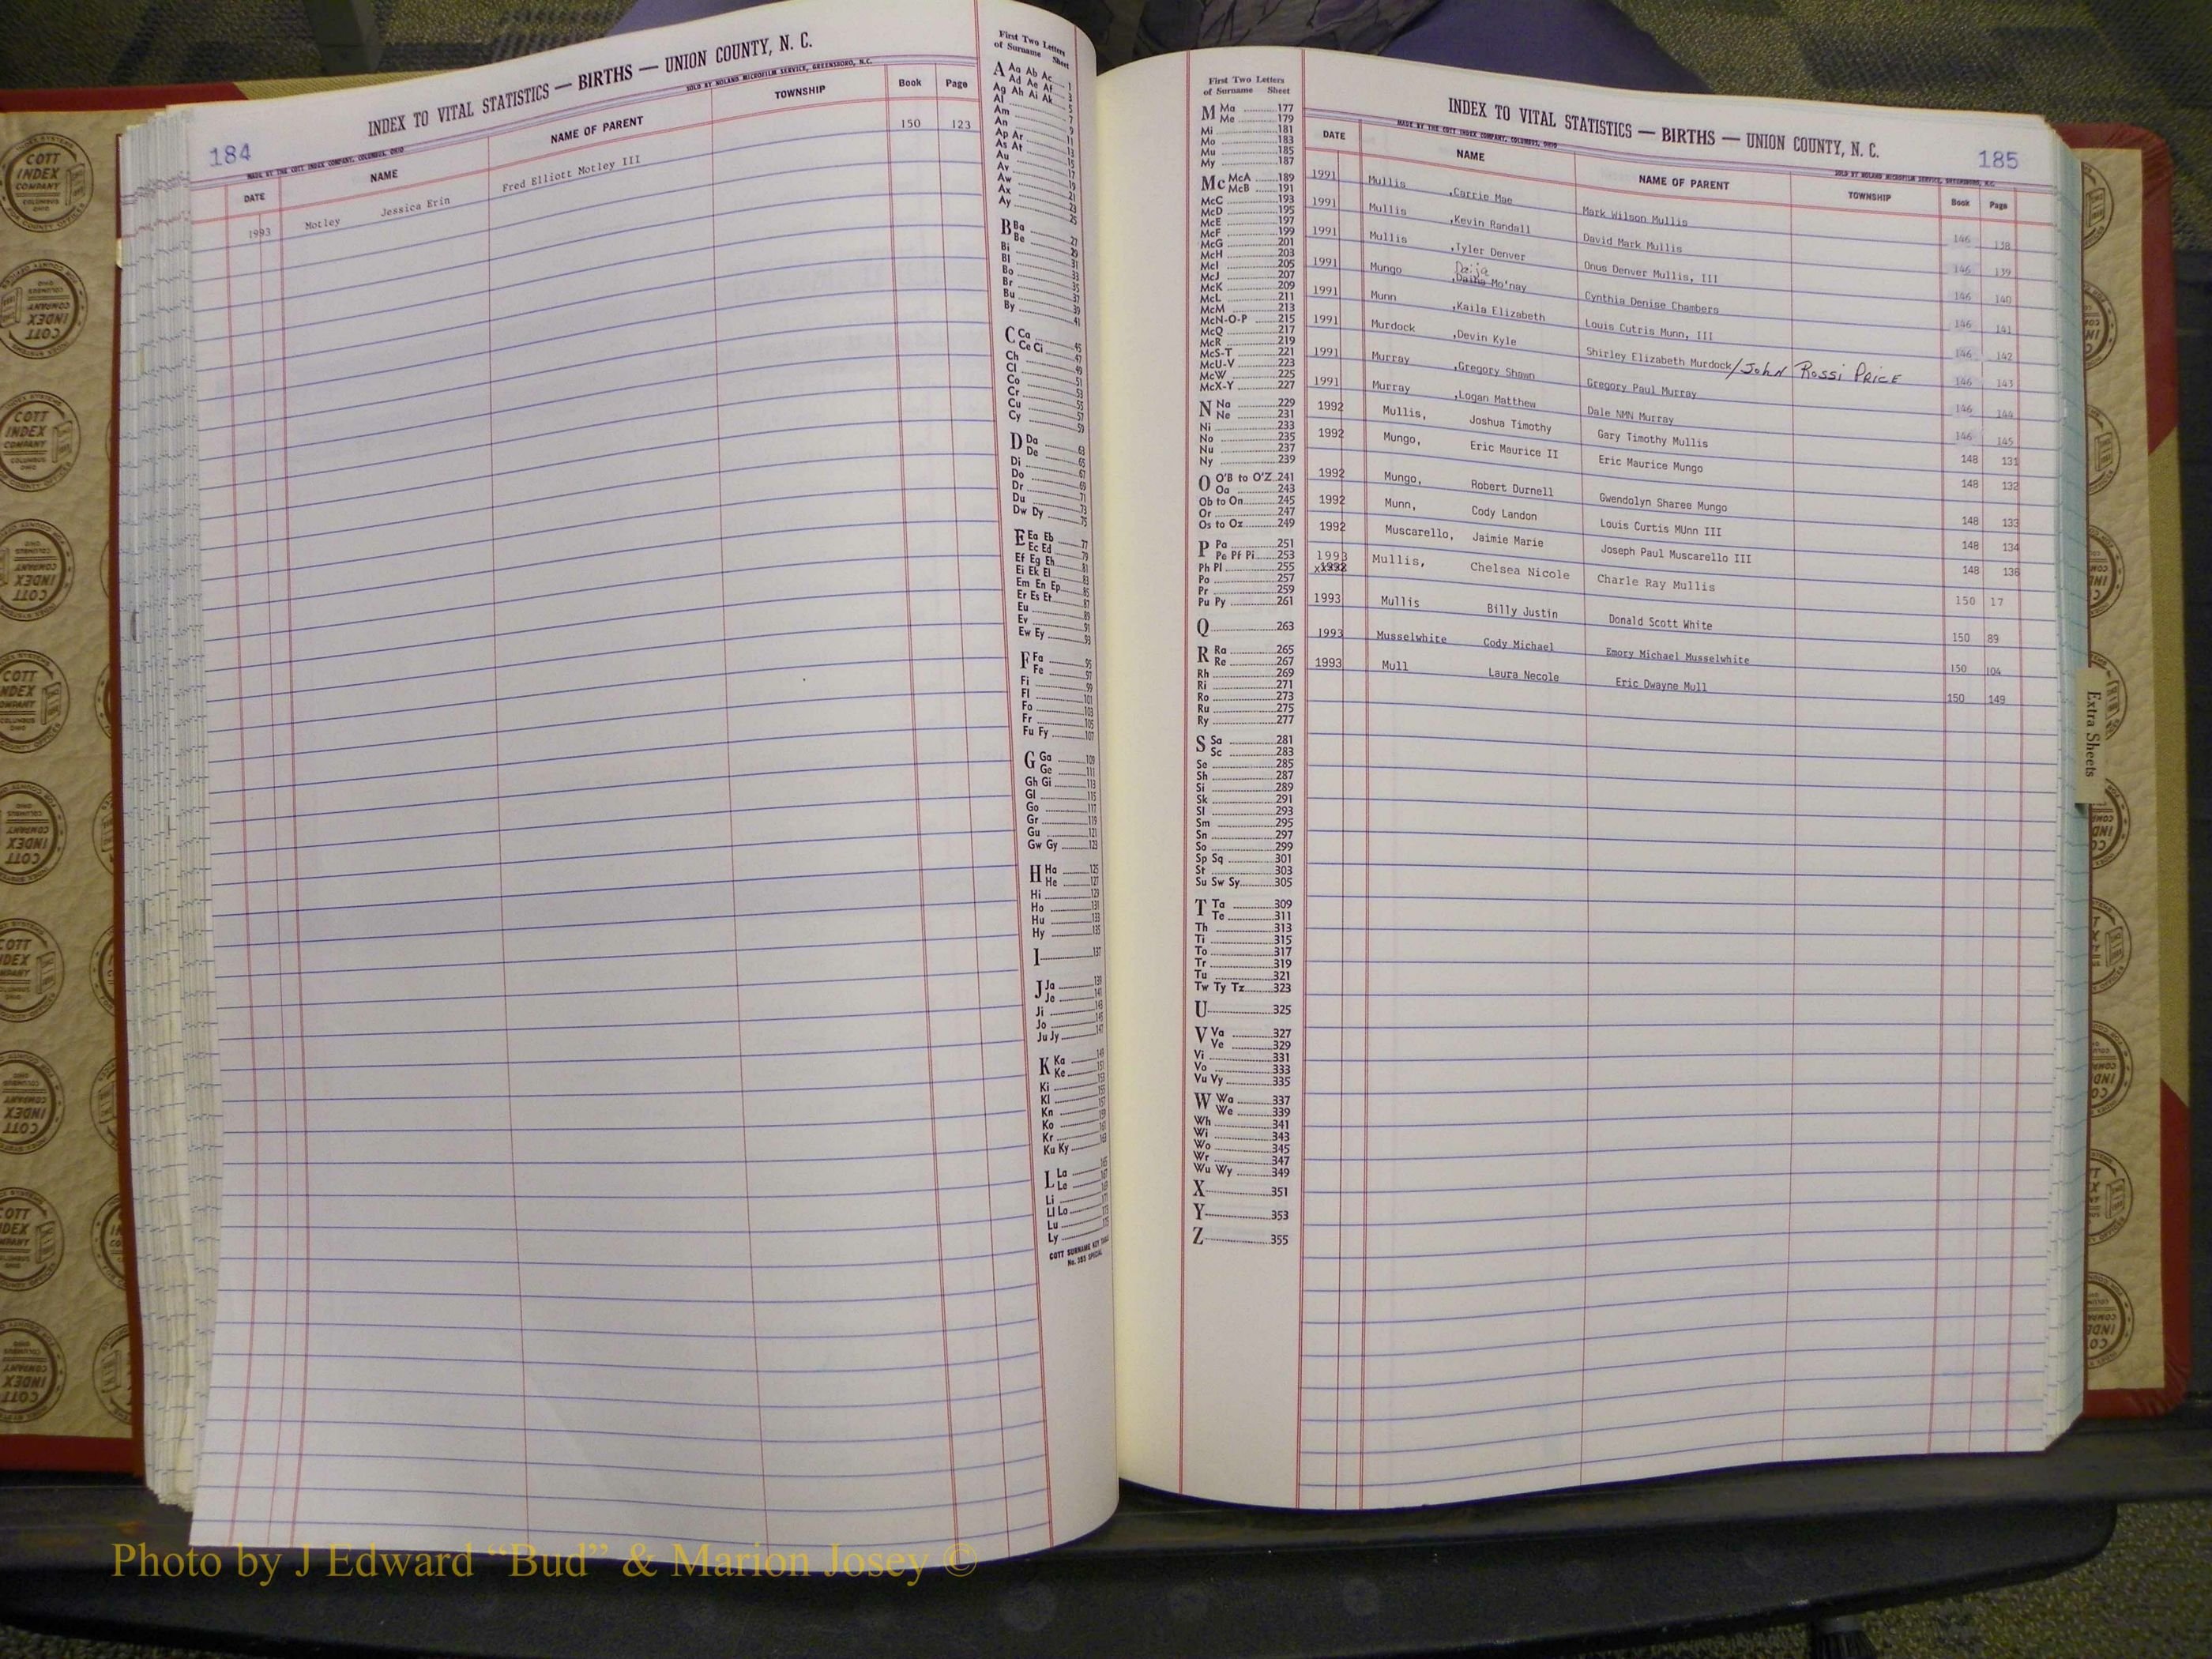 184
INDEX TO VITAL STATISTICS — BIRTHS — UNION COUNTY, N. C.
MADE BY THE COTT INDEX COMPANY, COLUMBUS, OHIO SOLD BY NOLAND MICROFILM SERVICE, GREENSBORO, N.C.
DATE NAME NAME OF PARENT TOWNSHIP Book Page
1993 Motley Jessica Erin Fred Elliott Motley III 150 123
First Two Letters
of Surname Sheet
A Aa Ab Ac 1
Ad Ae Af 3
Ag Ah Ai Ak 5
Al 7
Am 9
An 11
Ap Ar 13
As At 15
Au 17
Av 19
Aw 21
Ax 23
Ay 25
B Ba 27
Be 29
Bi 31
Bl 33
Bo 35
Br 37
Bu 39
By 41
C Ca 45
Ce Ci 47
Ch 49
Cl 51
Co 53
Cr 55
Cu 57
Cy 59
D Da 63
De 65
Di 67
Do 69
Dr 71
Du 73
Dw Dy 75
E Ea Eb 77
Ec Ed 79
Ef Eg Eh 81
Ei Ek El 83
Em En Ep 85
Er Es Et 87
Eu 89
Ev 91
Ew Ey 93
F Fa 95
Fe 97
Fi 99
Fl 101
Fo 103
Fr 105
Fu Fy 107
G Ga 109
Ge 111
Gh Gi 113
Gl 115
Go 117
Gr 119
Gu 121
Gw Gy 123
H Ha 125
He 127
Hi 129
Ho 131
Hu 133
Hy 135
I 137
J Ja 139
Je 141
Ji 143
Jo 145
Ju Jy 147
K Ka 149
Ke 151
Ki 153
Kl 155
Kn 157
Ko
Kr
Ku Ky 163
L La 165
Le 167
Li 171
Ll Lo 173
Lu 175
Ly
COTT SURNAME KEY TABLE
No. 385 SPECIAL
First Two Letters
of Surname Sheet
M Ma 177
Me 179
Mi 181
Mo 183
Mu 185
My 187
Mc McA 189
McB 191
McC 193
McD 195
McE 197
McF 199
McG 201
McH 203
McI 205
McJ 207
McK 209
McL 211
McM 213
McN-O-P 215
McQ 217
McR 219
McS-T 221
McU-V 223
McW 225
McX-Y 227
N Na 229
Ne 231
Ni 233
No 235
Nu 237
Ny 239
O O'B to O'Z 241
Oa 243
Ob to On 245
Or 247
Os to Oz 249
P Pa 251
Pe Pf Pi 253
Ph Pl 255
Po 257
Pr 259
Pu Py 261
Q 263
R Ra 265
Re 267
Rh 269
Ri 271
Ro 273
Ru 275
Ry 277
S Sa 281
Sc 283
Se 285
Sh 287
Si 289
Sk 291
Sl 293
Sm 295
Sn 297
So 299
Sp Sq 301
St 303
Su Sw Sy 305
T Ta 309
Te 311
Th 313
Ti 315
To 317
Tr 319
Tu 321
Tw Ty Tz 323
U 325
V Va 327
Ve 329
Vi 331
Vo 333
Vu Vy 335
W Wa 337
We 339
Wh 341
Wi 343
Wo 345
Wr 347
Wu Wy 349
X 351
Y 353
Z 355
INDEX TO VITAL STATISTICS — BIRTHS — UNION COUNTY, N. C.
185
MADE BY THE COTT INDEX COMPANY, COLUMBUS, OHIO SOLD BY NOLAND MICROFILM SERVICE, GREENSBORO, N.C.
DATE NAME NAME OF PARENT TOWNSHIP Book Page
1991 Mullis ,Carrie Mae Mark Wilson Mullis 146 138
1991 Mullis ,Kevin Randall David Mark Mullis 146 139
1991 Mullis ,Tyler Denver Onus Denver Mullis, III 146 140
Daija
1991 Mungo ,Daina Mo'nay Cynthia Denise Chambers 146 141
1991 Munn ,Kaila Elizabeth Louis Cutris Munn, III 146 142
1991 Murdock ,Devin Kyle Shirley Elizabeth Murdock/John Rossi Price 146 143
1991 Murray ,Gregory Shawn Gregory Paul Murray 146 144
1991 Murray ,Logan Matthew Dale NMN Murray 146 145
1992 Mullis, Joshua Timothy Gary Timothy Mullis 148 131
1992 Mungo, Eric Maurice II Eric Maurice Mungo 148 132
1992 Mungo, Robert Durnell Gwendolyn Sharee Mungo 148 133
1992 Munn, Cody Landon Louis Curtis MUnn III 148 134
1992 Muscarello, Jaimie Marie Joseph Paul Muscarello III 148 136
1993 Mullis, Chelsea Nicole Charle Ray Mullis 150 17
1993 Mullis Billy Justin Donald Scott White 150 89
1993 Musselwhite Cody Michael Emory Michael Musselwhite 150 104
1993 Mull Laura Necole Eric Dwayne Mull 150 149
Extra Sheets
COTT
INDEX
COMPANY
COLUMBUS
OHIO
Photo by J Edward “Bud” & Marion Josey ©